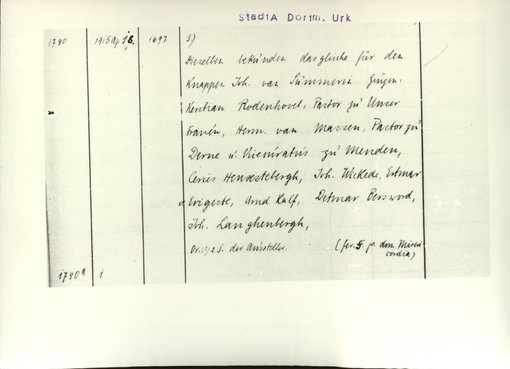 StadtA Dortm. Urk
1740 1415 Ap 18. 1697 3)
Dieselben bekunden das gleiche für den
Knappen Joh. van Sümmeren Zeugen:
Kerstian Rodenhovel, Pastor zu Unser
Frauen, Herm. van Massen, Pastor zu
Derne u. Vicecuratus zu Menden,
Joh. Wickede, Ertmar
Arnd Kalf, Detmar Berswod,
Joh. Langhenbergh,
der Aussteller. (fer. 5 p. dom. Miseri
cordia)
1740a 1